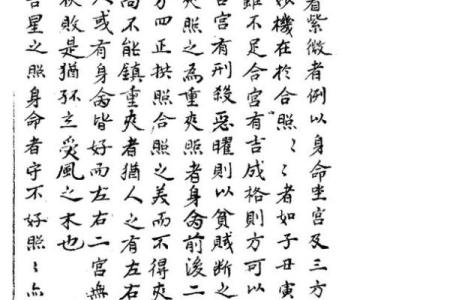 看紫微者例以身命坐宫及三方
機在於合照〻者如子丑寅
雖不足合宫有吉成格則方可以
宫有刑殺惡曜則以貧賤断之
夾照之為重夾照者身命前後二
方四正拱照合照之美而不得夾
尚不能鎮重夾者猶人之有左右
人或有身命皆好而左右二宫無
敗是猶孤立受風之木也
吉星之照身命者守不好照〻